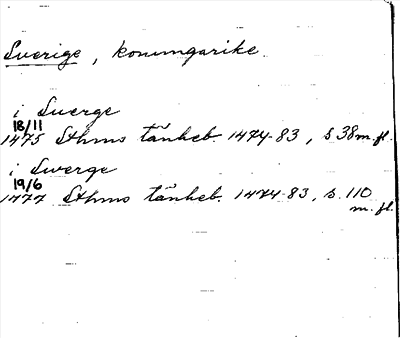 Sverige, konungarike.
i Swerge
18/11
1475 Sthms tänkeb. 1474-83, s 38 m. fl.
i Swerge
19/6
1477 Sthms tänkeb. 1474-83, s. 110
m. fl.